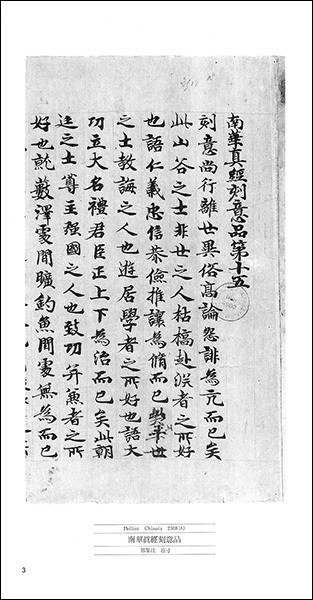 南華真經刻意品第十五
刻意尚行離世異俗髙論怨誹為亢而已矣
此山谷之士非世之人枯槁赴渕者之所好
也語仁義忠信恭儉推讓為脩而已矣平世
之士教誨之人也遊居學者之所好也語大
功立大名禮君臣正上下為治而已矣此朝
廷之士尊主强國之人也致功并兼者之所
好也就藪澤處閒曠釣魚閒處無為而已
Pelliot Chinois 2508(A)
南華眞經刻意品
郭象注 原寸
3